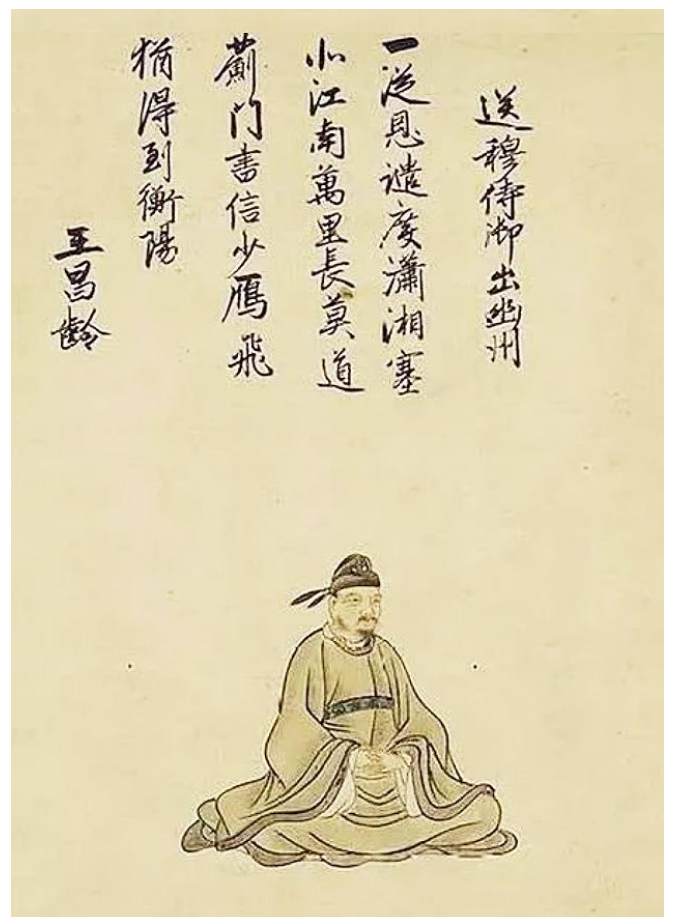 送穆侍御出幽州
一從恩譴度瀟湘塞
北江南萬里長莫道
薊门書信少鴈飛
猶得到衡陽
王昌齡